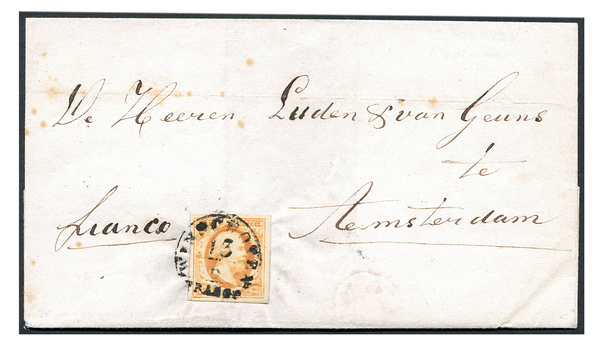 De Heeren Luden & van Geuns
te
franco Amsterdam
WINSCHOTEN
FRANCO